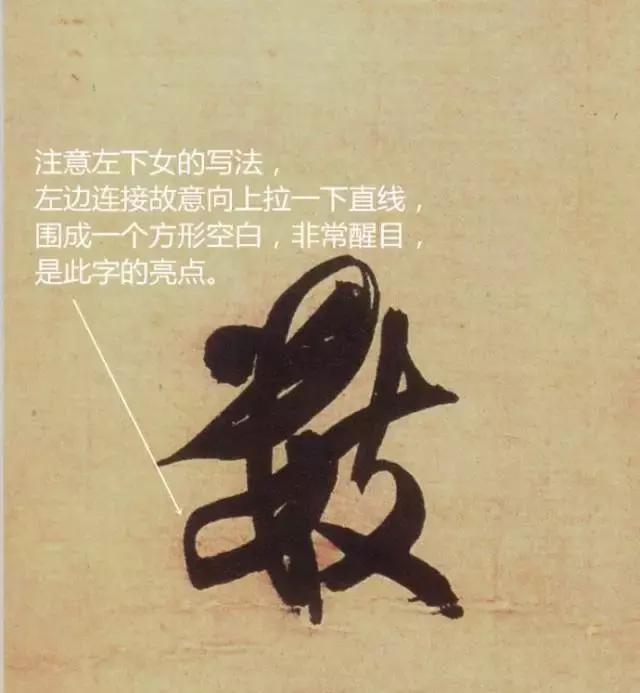 注意左下女的写法，
左边连接故意向上拉一下直线，
围成一个方形空白，非常醒目，
是此字的亮点。
数